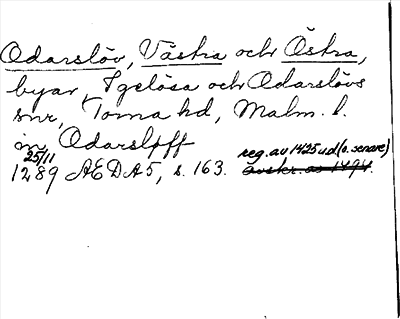 Odarslöv, Västra och Östra,
byar, Igelösa och Odarslövs
snr, Torna hd, Malm. l.
in Odarsløff
25/11 1289 ÆDA5, s. 163. reg. av 1425 ud (o. senare)
avskr. av 1494.